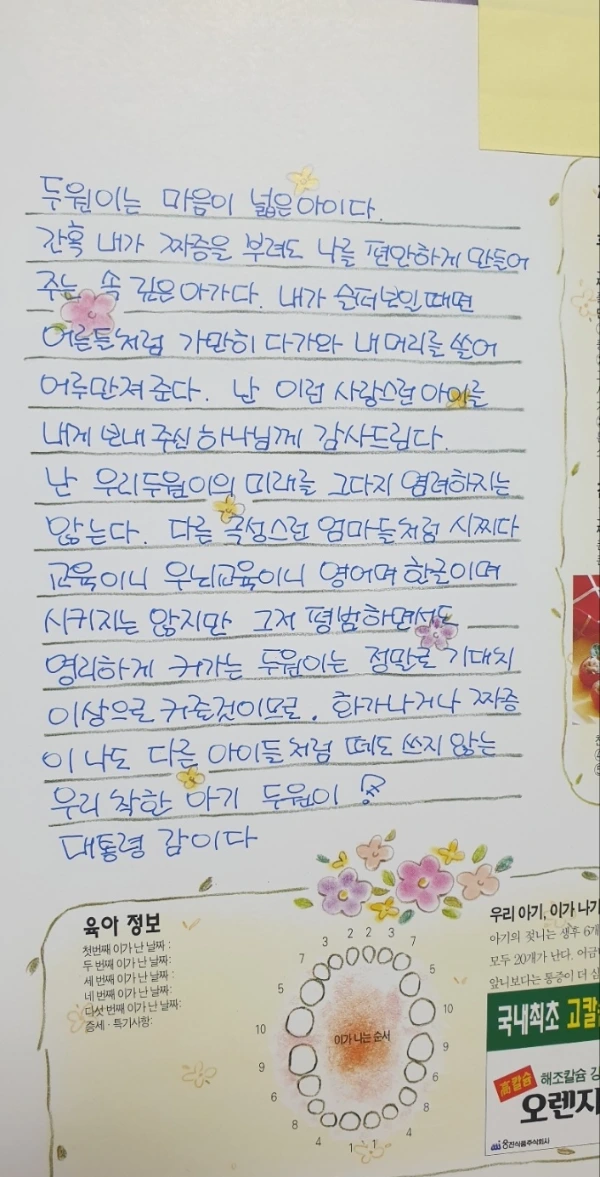 두원이는 마음이 넓은아이다.
간혹 내가 짜증을 부려도 나를 편안하게 만들어
주는 속 깊은아가다. 내가 슬퍼보일때면
어른들처럼 가만히 다가와 내머리를 쓸어
어루만져준다. 난 이런 사랑스런아이를
내게 보내주신하나님께 감사드린다.
난 우리두원이의 미래를 그다지 염려하지는
않는다. 다른 극성스런 엄마들처럼 시찌다
교육이니 우뇌교육이니 영어며 한글이며
시키지는 않지만 그저 평범하면서도
영리하게 커가는 두원이는 정말로 기대치
이상으로 커줄것이므로. 화가나거나 짜증
이 나도 다른 아이들처럼 떼도 쓰지 않는
우리 착한 아기 두원이
대통령 감이다
육아 정보
첫번째 이가 난 날짜 :
두 번째 이가 난 날짜 :
세 번째 이가 난 날짜 :
네 번째 이가 난 날짜 :
다섯 번째 이가 난 날짜:
증세 · 특기사항:
이가 나는 순서
2 2
3 3
7 7
5 5
10 10
9 9
6 6
8 8
4 1 1 4
우리 아기, 이가 나기
아기의 젖니는 생후 6개
모두 20개가 난다. 어금
앞니보다는 통증이 더 심
국내최초 고칼슘
高칼슘
해조칼슘 강
오렌지
웅진식품주식회사